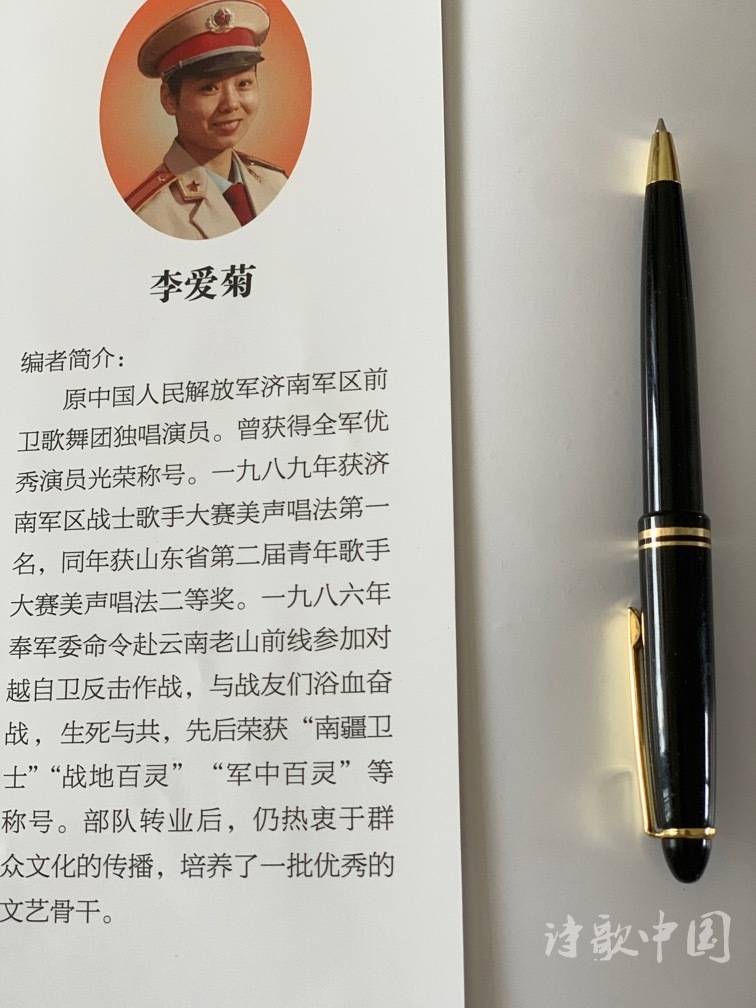 李爱菊
编者简介：
原中国人民解放军济南军区前
卫歌舞团独唱演员。曾获得全军优
秀演员光荣称号。一九八九年获济
南军区战士歌手大赛美声唱法第一
名，同年获山东省第二届青年歌手
大赛美声唱法二等奖。一九八六年
奉军委命令赴云南老山前线参加对
越自卫反击作战，与战友们浴血奋
战，生死与共，先后荣获“南疆卫
士”“战地百灵” “军中百灵”等
称号。部队转业后，仍热衷于群
众文化的传播，培养了一批优秀的
文艺骨干。
诗歌中国